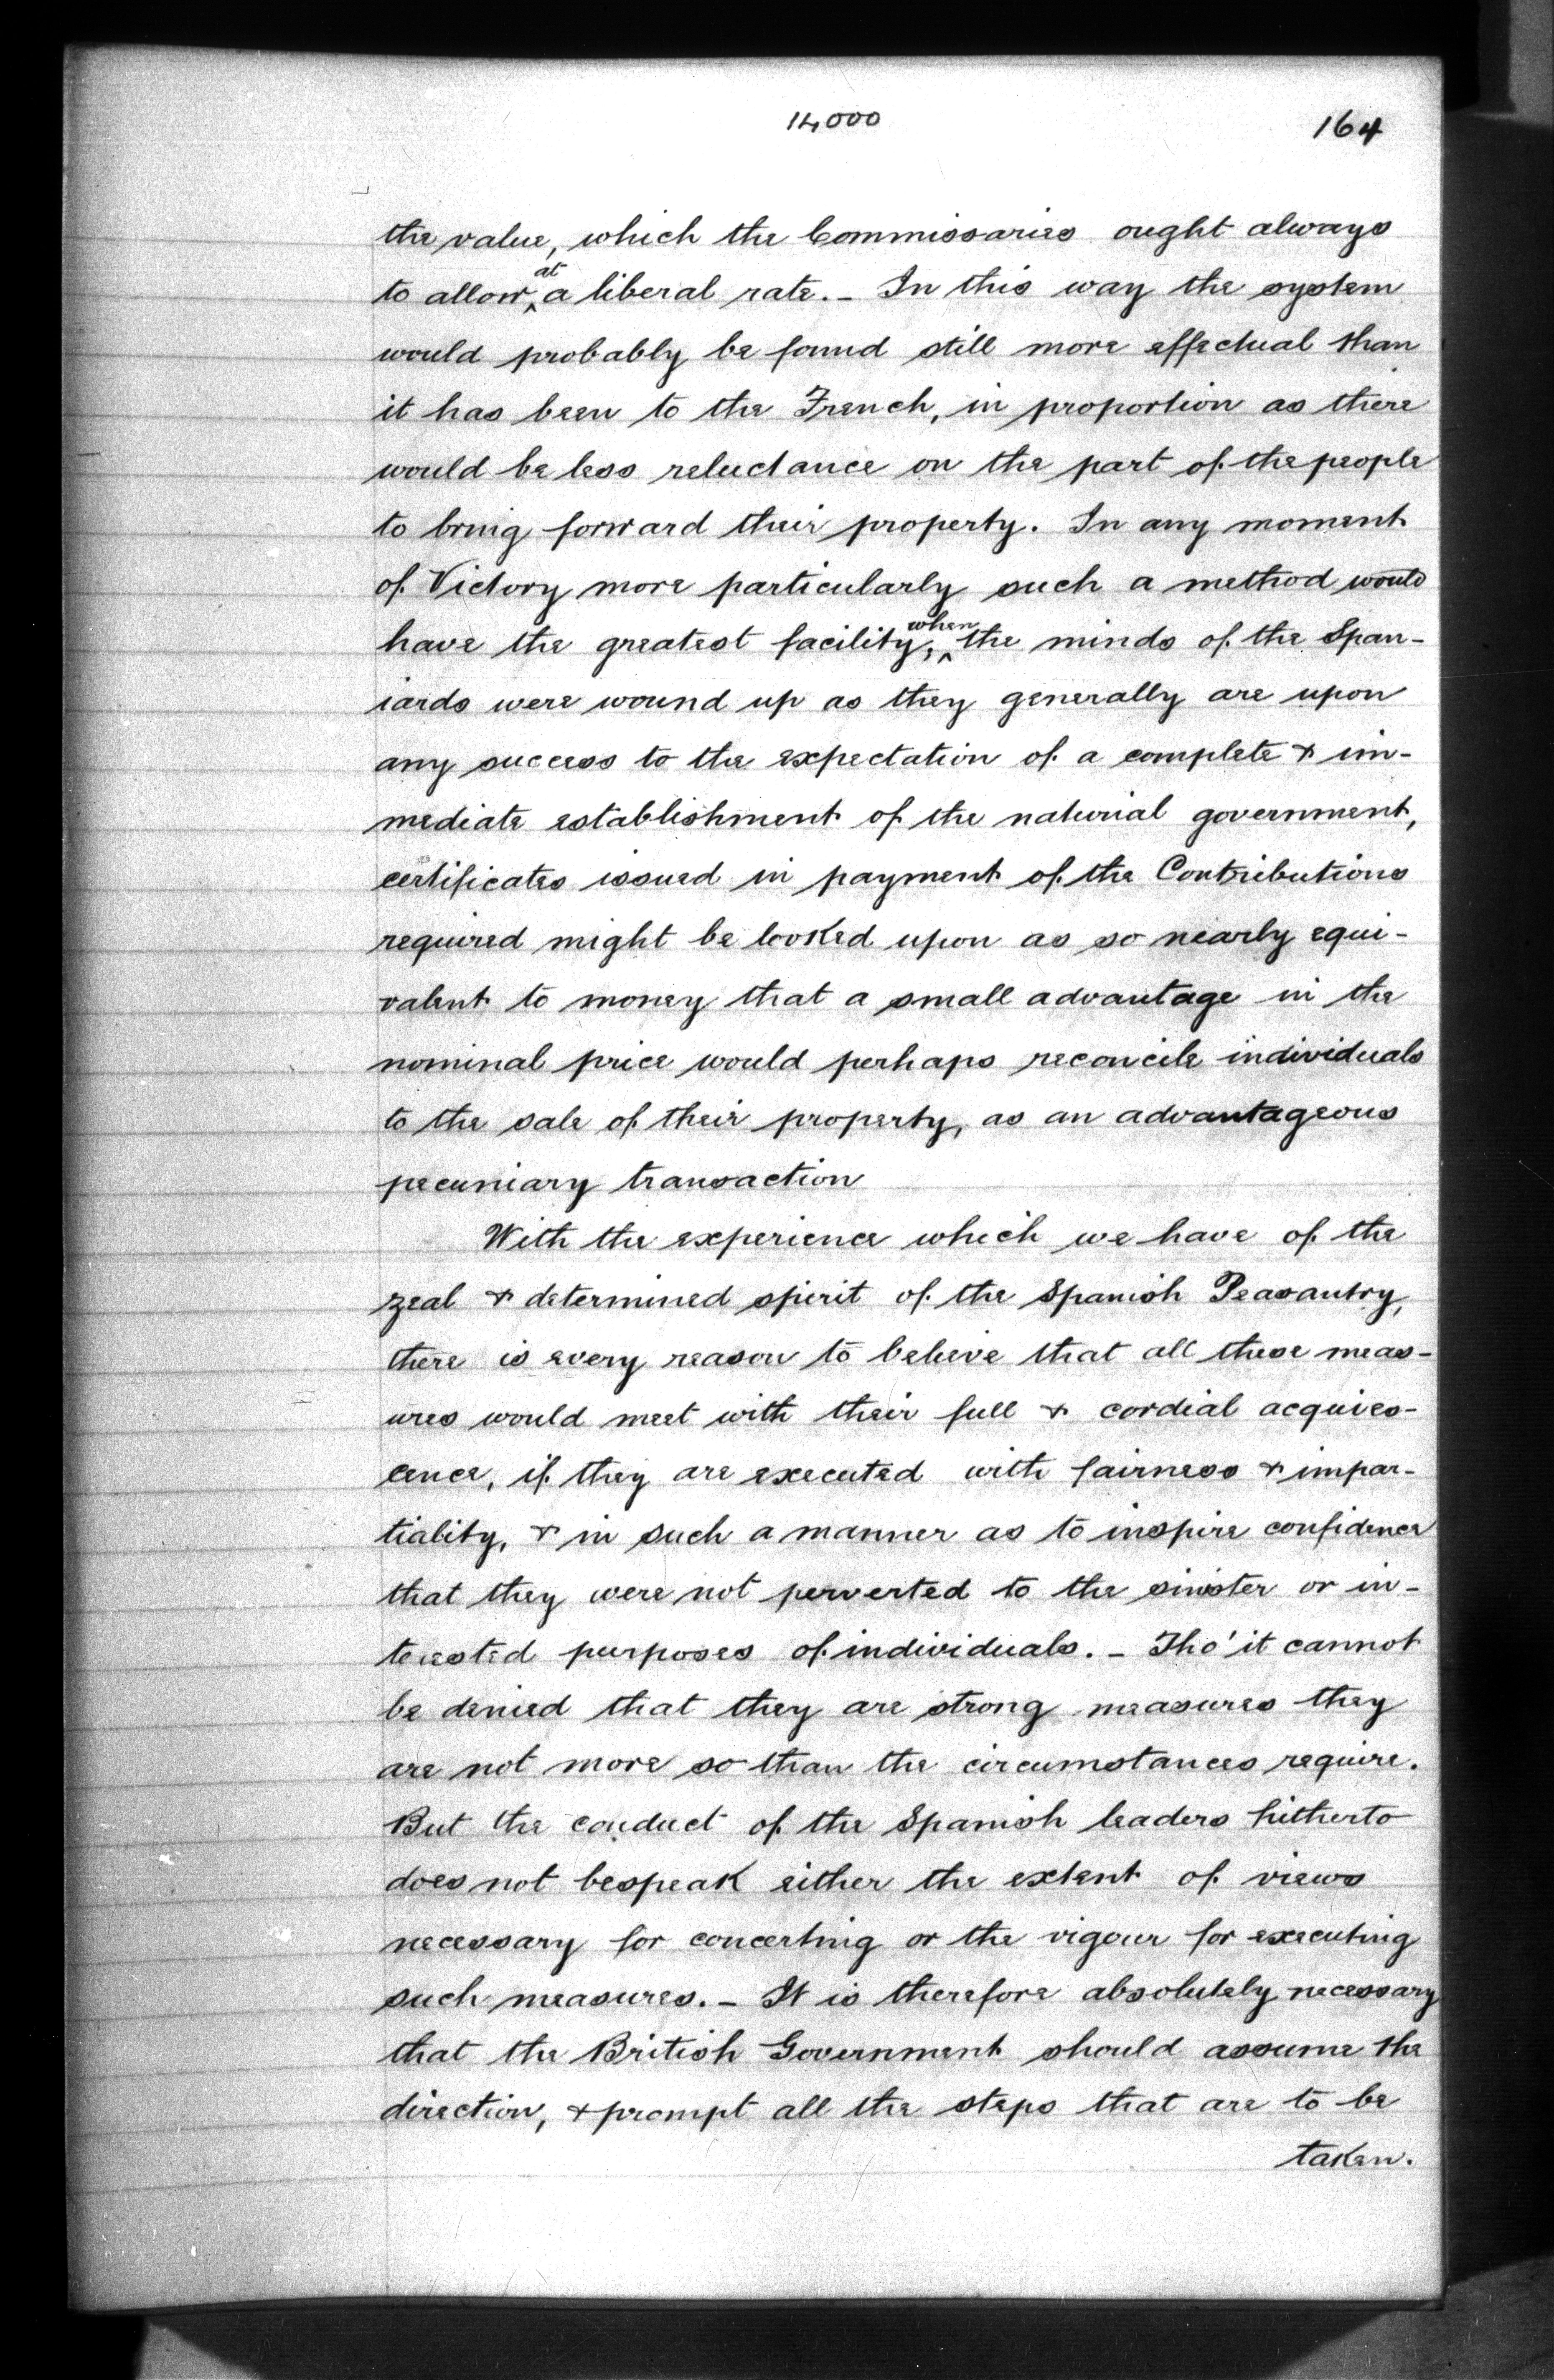 14,000
164
the value, which the Commissaries ought always
to allow at a liberal rate. - In this way the system
would probably be found still more effectual than
it has been to the French, in proportion as there
would be less reluctance on the part of the people
to bring forward their property. In any moment
of Victory more particularly such a method would
have the greatest facility, when the minds of the Span-
iards were wound up as they generally are upon
any success to the expectation of a complete & im-
mediate establishment of the natural government,
certificates issued in payment of the Contributions
required might be looked upon as so nearly equi-
valent to money that a small advantage in the
nominal price would perhaps reconcile individuals
to the sale of their property, as an advantageous
pecuniary transaction
With the experience which we have of the
zeal & determined spirit of the Spanish Peasantry,
there is every reason to believe that all these meas-
ures would meet with their full & cordial acquies-
cence, if they are executed with fairness & impar-
tiality, & in such a manner as to inspire confidence
that they were not perverted to the sinister or in-
terested purposes of individuals. - Tho' it cannot
be denied that they are strong measures they
are not more so than the circumstances require.
But the conduct of the Spanish leaders hitherto
does not bespeak either the extent of views
necessary for concerting or the vigour for executing
such measures. - It is therefore absolutely necessary
that the British Government should assume the
direction, & prompt all the steps that are to be
taken.